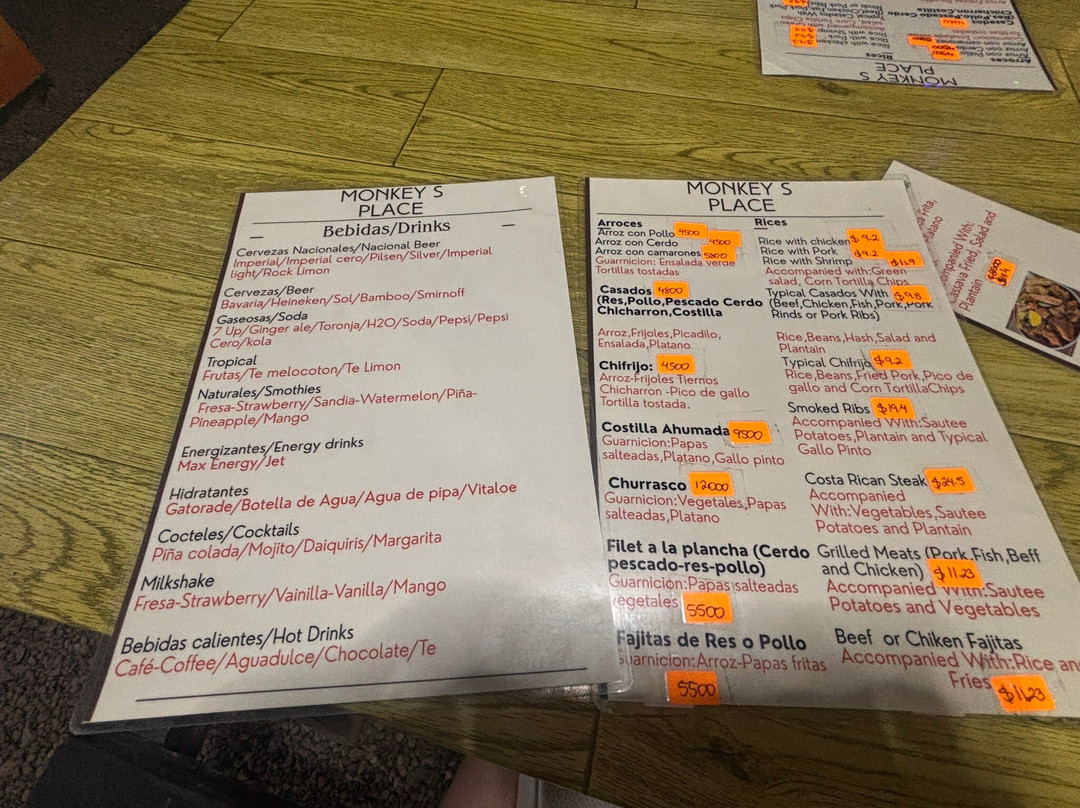 MONKEY S
PLACE
Bebidas/Drinks
Cervezas Nacionales/Nacional Beer
Imperial/Imperial cero/Pilsen/Silver/Imperial
light/Rock Limon
Cervezas/Beer
Bavaria/Heineken/Sol/Bamboo/Smirnoff
Gaseosas/Soda
7 Up/Ginger ale/Toronja/H2O/Soda/Pepsi/Pepsi
Cero/kola
Tropical
Frutas/Te melocoton/Te Limon
Naturales/Smothies
Fresa-Strawberry/Sandia-Watermelon/Piña-
Pineapple/Mango
Energizantes/Energy drinks
Max Energy/Jet
Hidratantes
Gatorade/Botella de Agua/Agua de pipa/Vitaloe
Cocteles/Cocktails
Piña colada/Mojito/Daiquiris/Margarita
Milkshake
Fresa-Strawberry/Vainilla-Vanilla/Mango
Bebidas calientes/Hot Drinks
Café-Coffee/Aguadulce/Chocolate/Te
MONKEY S
PLACE
Arroces
Arroz con Pollo 4500
Arroz con Cerdo 4500
Arroz con camarones 5800
Guarnicion: Ensalada verde
Tortillas tostadas
Casados 4800
(Res,Pollo,Pescado Cerdo
Chicharron,Costilla
Arroz,Frijoles,Picadilo,
Ensalada,Platano
Chifrijo: 4500
Arroz-Frijoles Tiernos
Chicharron -Pico de gallo
Tortilla tostada.
Costilla Ahumada 9500
Guarnicion:Papas
salteadas,Platano,Gallo pinto
Churrasco 12000
Guarnicion:Vegetales,Papas
salteadas,Platano
Filet a la plancha (Cerdo
pescado-res-pollo)
Guarnicion:Papas salteadas
vegetales 5500
Fajitas de Res o Pollo
Guarnicion:Arroz-Papas fritas
5500
Rices
Rice with chicken $ 9.2
Rice with Pork $9.2
Rice with Shrimp $11.9
Accompanied with:Green
salad, Corn Tortilla Chips
Typical Casados With $9.8
(Beef,Chicken,Fish,Pork,Pork
Rinds or Pork Ribs)
Rice,Beans,Hash,Salad and
Plantain
Typical Chifrijo $9.2
Rice,Beans,Fried Pork,Pico de
gallo and Corn TortillaChips
Smoked Ribs $19.4
Accompanied With:Sautee
Potatoes,Plantain and Typical
Gallo Pinto
Costa Rican Steak $24.5
Accompanied
With:Vegetables,Sautee
Potatoes and Plantain
Grilled Meats (Pork,Fish,Beff
and Chicken) $11.23
Accompanied With:Sautee
Potatoes and Vegetables
Beef or Chiken Fajitas
Accompanied With:Rice and
Fries $11.23
Frita,
With:
Cassava Fried, Salad and
Plantain
MONKEY S
PLACE
Arroces
Rices
Arroz con Pollo
Arroz con Cerdo
Arroz con camarones
Tortillas tostadas
Casados
(Res,Pollo,Pescado Cerdo
Chicharron,Costilla
Rice with chicken
Rice with Pork
Rice with Shrimp
Typical Casados With